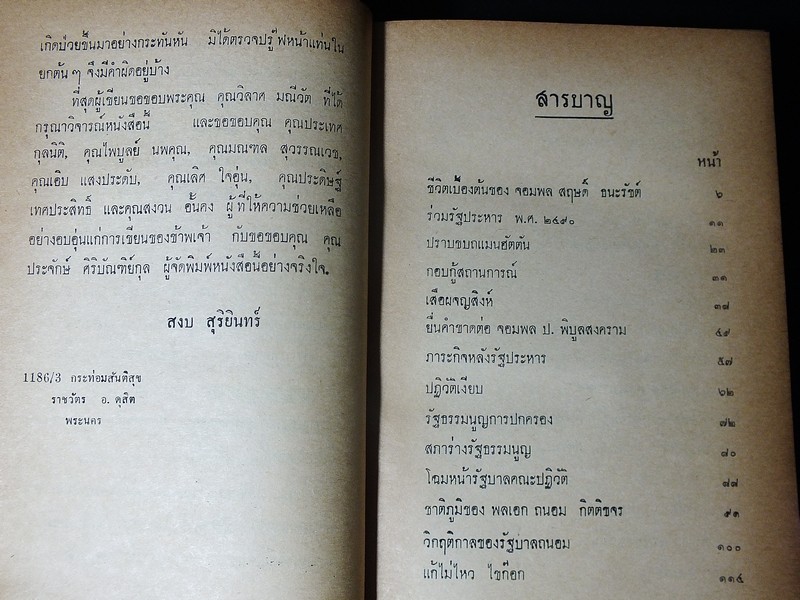 เกิดป่วยขึ้นมาอย่างกระทันหัน มิได้ตรวจปรู๊ฟหน้าแท่นใน
ยกต้น ๆ จึงมีคำผิดอยู่บ้าง
ที่สุดผู้เขียนขอขอบพระคุณ คุณวิลาศ มณีวัต ที่ได้
กรุณาวิจารณ์หนังสือนี้ และขอขอบคุณ คุณประเทศ
กุลนิติ, คุณไพบูลย์ นพคุณ, คุณมณฑล สุวรรณเวช,
คุณเอิบ แสงประดับ, คุณเลิศ ใจอุ่น, คุณประดิษฐ์
เทศประสิทธิ์ และคุณสงวน อั้นคง ผู้ที่ให้ความช่วยเหลือ
อย่างอบอุ่นแก่การเขียนของข้าพเจ้า กับขอขอบคุณ คุณ
ประจักษ์ ศิริบัณฑิย์กุล ผู้จัดพิมพ์หนังสือนี้อย่างจริงใจ.
สงบ สุริยินทร์
1186/3 กระท่อมสันติสุข
ราชวัตร อ. ดุสิต
พระนคร
สารบาญ
หน้า
ชีวิตเบื้องต้นของ จอมพล สฤษดิ์ ธนะรัชต์ ๖
ร่วมรัฐประหาร พ.ศ. ๒๔๙๐ ๑๑
ปราบขบถแมนฮัตตัน ๒๓
กอบกู้สถานการณ์ ๓๑
เสือผจญสิงห์ ๓๘
ยื่นคำขาดต่อ จอมพล ป. พิบูลสงคราม ๔๙
ภาระกิจหลังรัฐประหาร ๕๗
ปฏิวัติเงียบ ๖๒
รัฐธรรมนูญการปกครอง ๗๒
สภาร่างรัฐธรรมนูญ ๘๐
โฉมหน้ารัฐบาลคณะปฏิวัติ ๘๗
ชาติภูมิของ พลเอก ถนอม กิตติขจร ๙๓
วิกฤติกาลของรัฐบาลถนอม ๑๐๐
แก้ไม่ไหว ไขก๊อก ๑๑๔